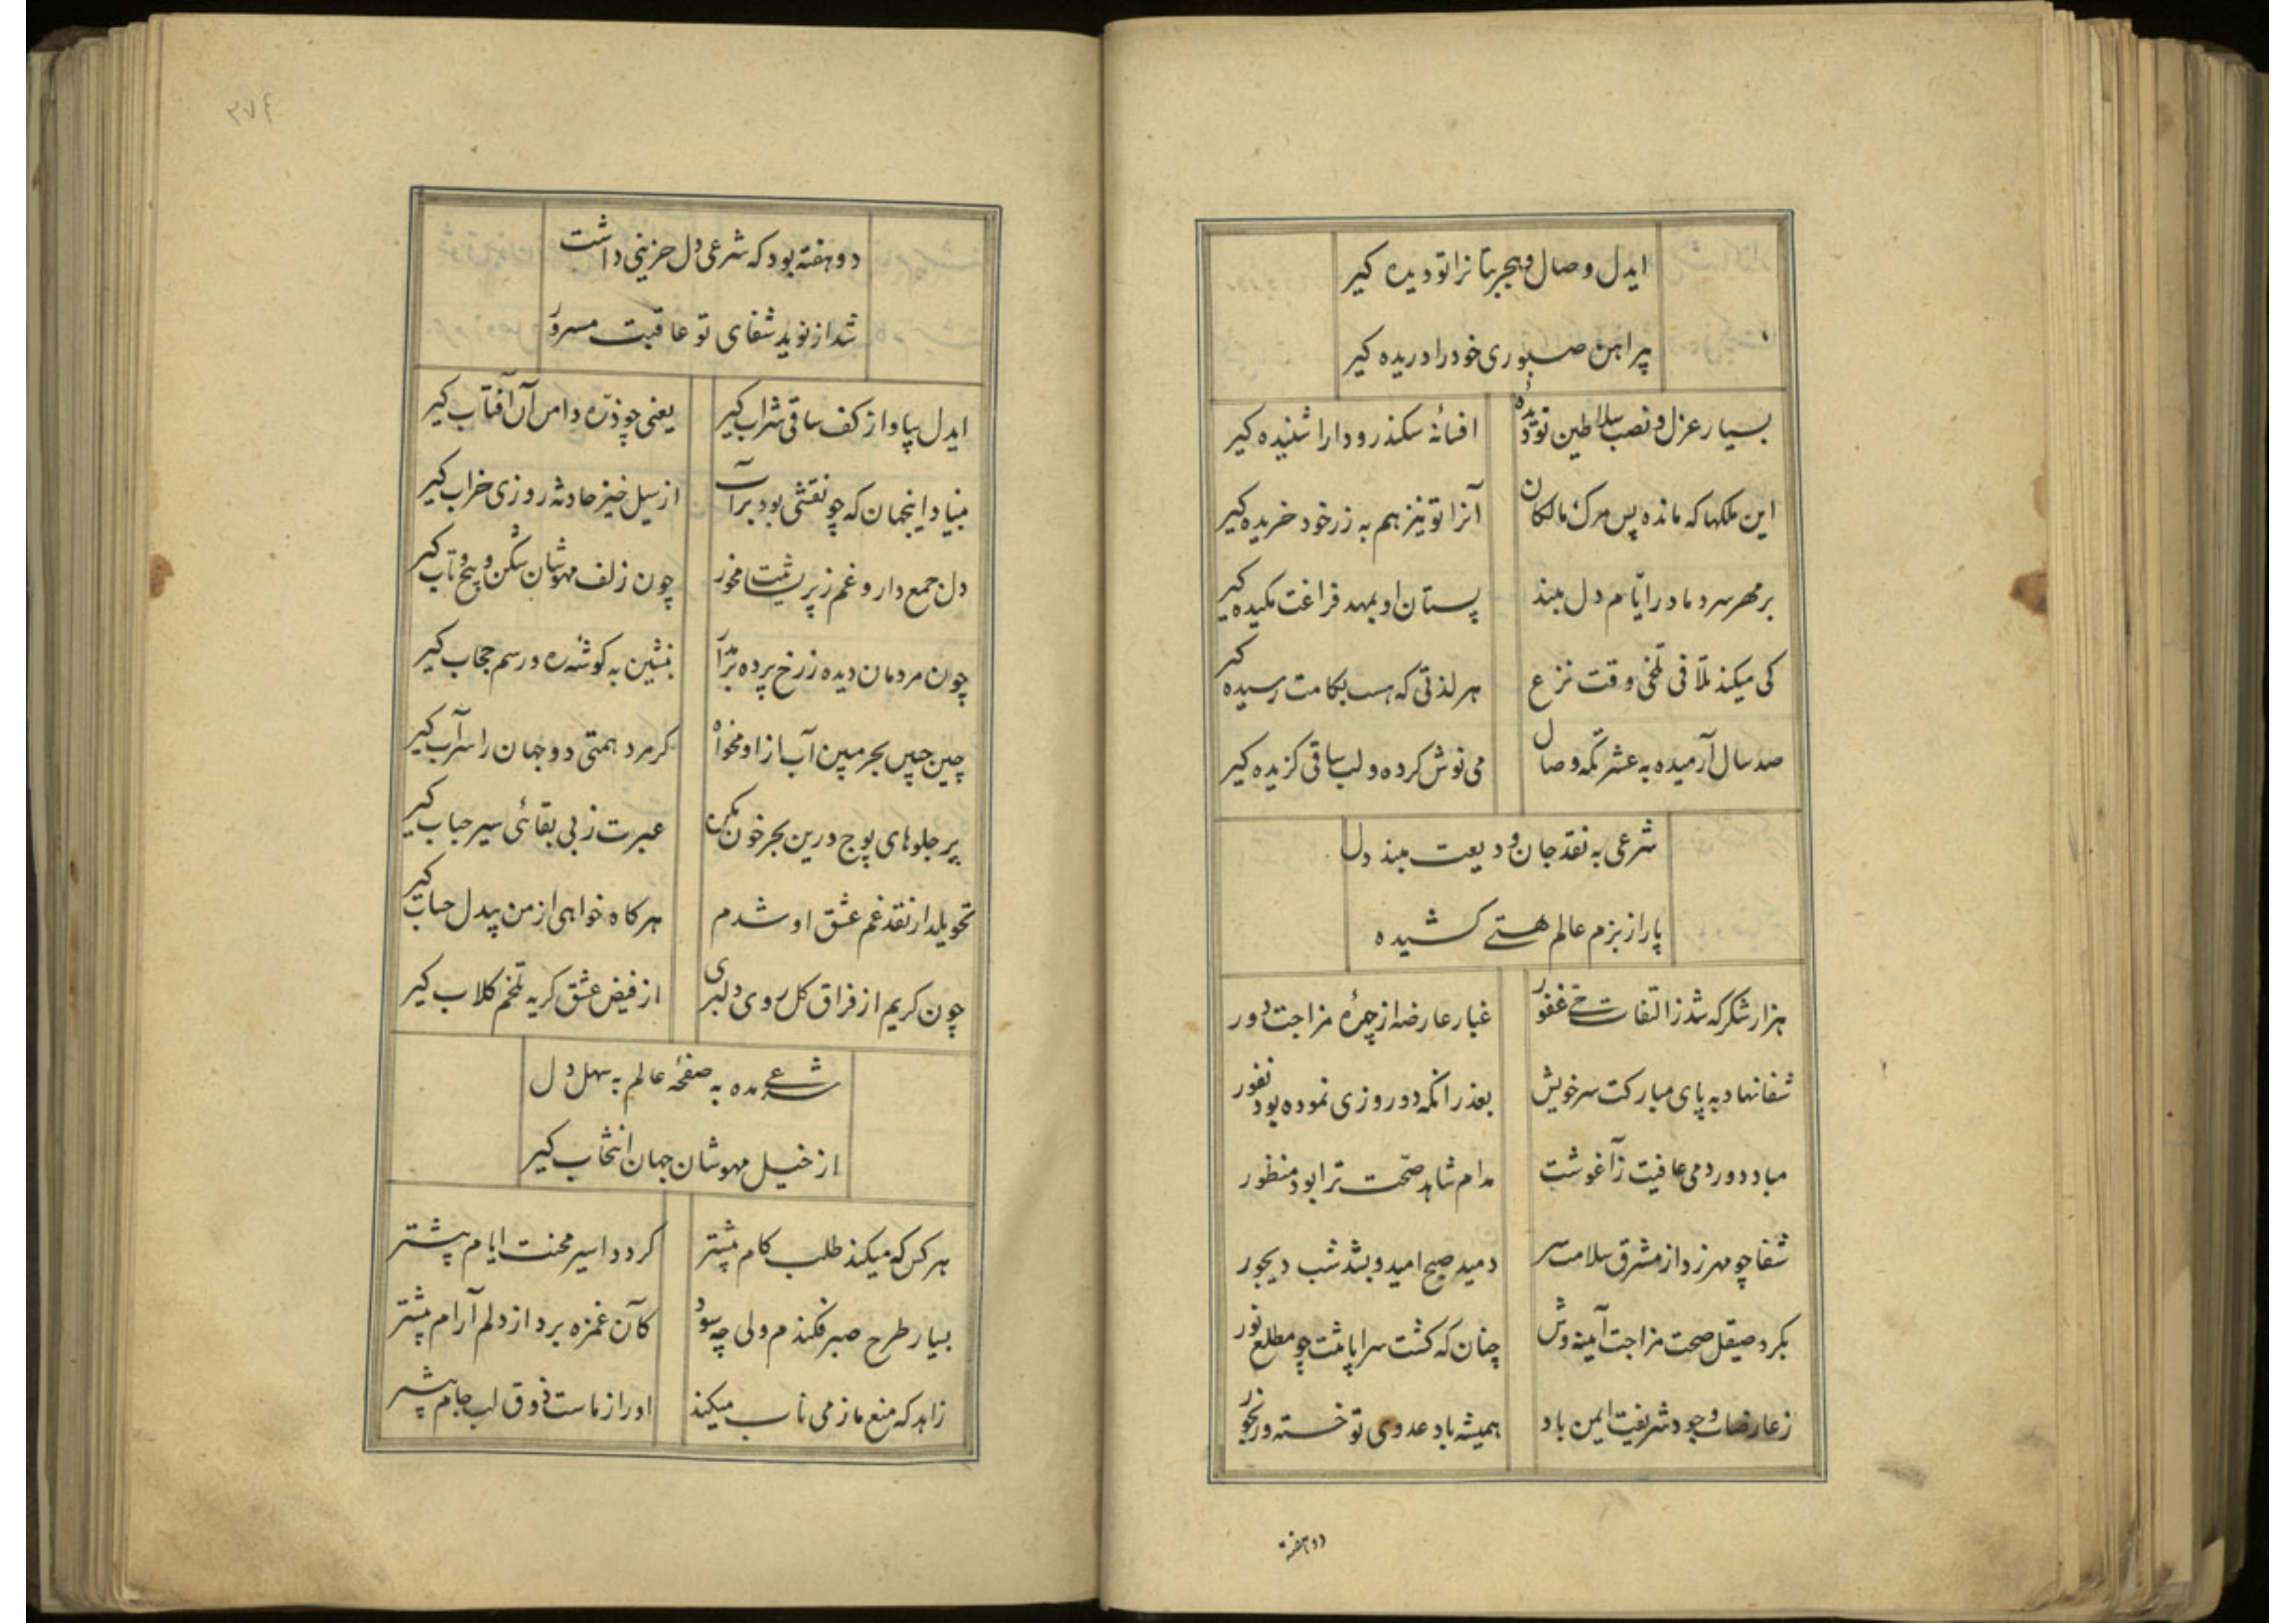 ایدل وصال و هجر بتانرا تو دیده کیر
پیراهن صبوری خود را دریده کیر
بسیار عزل و نصب سلاطین تو دیدهٔ
افسانهٔ سکندر و دارا شنیده کیر
این ملکها که مانده پس مرک مالکان
آنرا تو نیز هم به زر خود خریده کیر
بر مهر سرد مادر ایّام دل مبند
پستان او بمهد فراغت مکیده کیر
کی میکند تلافی تلخی وقت نزع
هر لذتی که هست بکامت رسیده کیر
صد سال آرمیده به عشرتکه وصال
می نوش کرده و لب ساقی کزیده کیر
شرعی به نقد جان ودیعت مبند دل
پا را ز بزم عالم هستے کشیده
هزار شکر که شد ز التفات حق غفور
غبار عارضه از چهرهٔ مزاجت دور
شفا نهاد به پای مبارکت سر خویش
بعذر انکه دو روزی نموده بود نفور
مباد دور دمی عافیت ز آغوشت
مدام شاهد صحّت ترا بود منظور
شفا چو مهر زد از مشرق سلامت سر
دمید صبح امید و بشد شب دیجور
بکرد صیقل صحت مزاجت آینه وش
چنان که کشت سراپات چو مطلع نور
ز عارضات وجود شریفت ایمن باد
همیشه باد عدوی تو خسته و رنجور
دو هفته
۳۷۴
دو هفته بود که شرعی دل حزینی داشت
شد از نوید شفای تو عاقبت مسرور
ایدل بیا و از کف ساقی شراب کیر
یعنی چو ذرّه دامن آن آفتاب کیر
بنیاد اینجهان که چو نقشی بود بر آب
از سیل خیز حادثه روزی خراب کیر
دل جمع دار و غم ز پریشت مخور
چون زلف مهوشان شکن و پیچ و تاب کیر
چون مردمان دیده ز رخ پرده بر مدآر
بنشین به کوشهٔ ره و رسم حجاب کیر
چین جبین بحر مبین آب ازاو مخواه
کر مرد همتی دو جهان را سرآب کیر
بر جلوهای پوچ درین بحر خون مکن
عبرت ز بی بقائی سیر حباب کیر
تحویلدار نقد غم عشق او شدم
هرکاه خواهی از من بیدل حساب کیر
چون کریم از فراق کل روی دلبری
از فیض عشق کریه تلخم کلاب کیر
شرعے مده به صفحهٔ عالم به سهل دل
از خیل مهوشان جهان انتخاب کیر
هر کس که میکند طلب کام بیشتر
کردد اسیر محنت ایام بیشتر
بسیار طرح صبر فکندم ولی چه سود
کآن غمزه برد از دلم آرام بیشتر
زاهد که منع ما ز می ناب میکند
او را ز ماست ذوق لب جام بیشتر